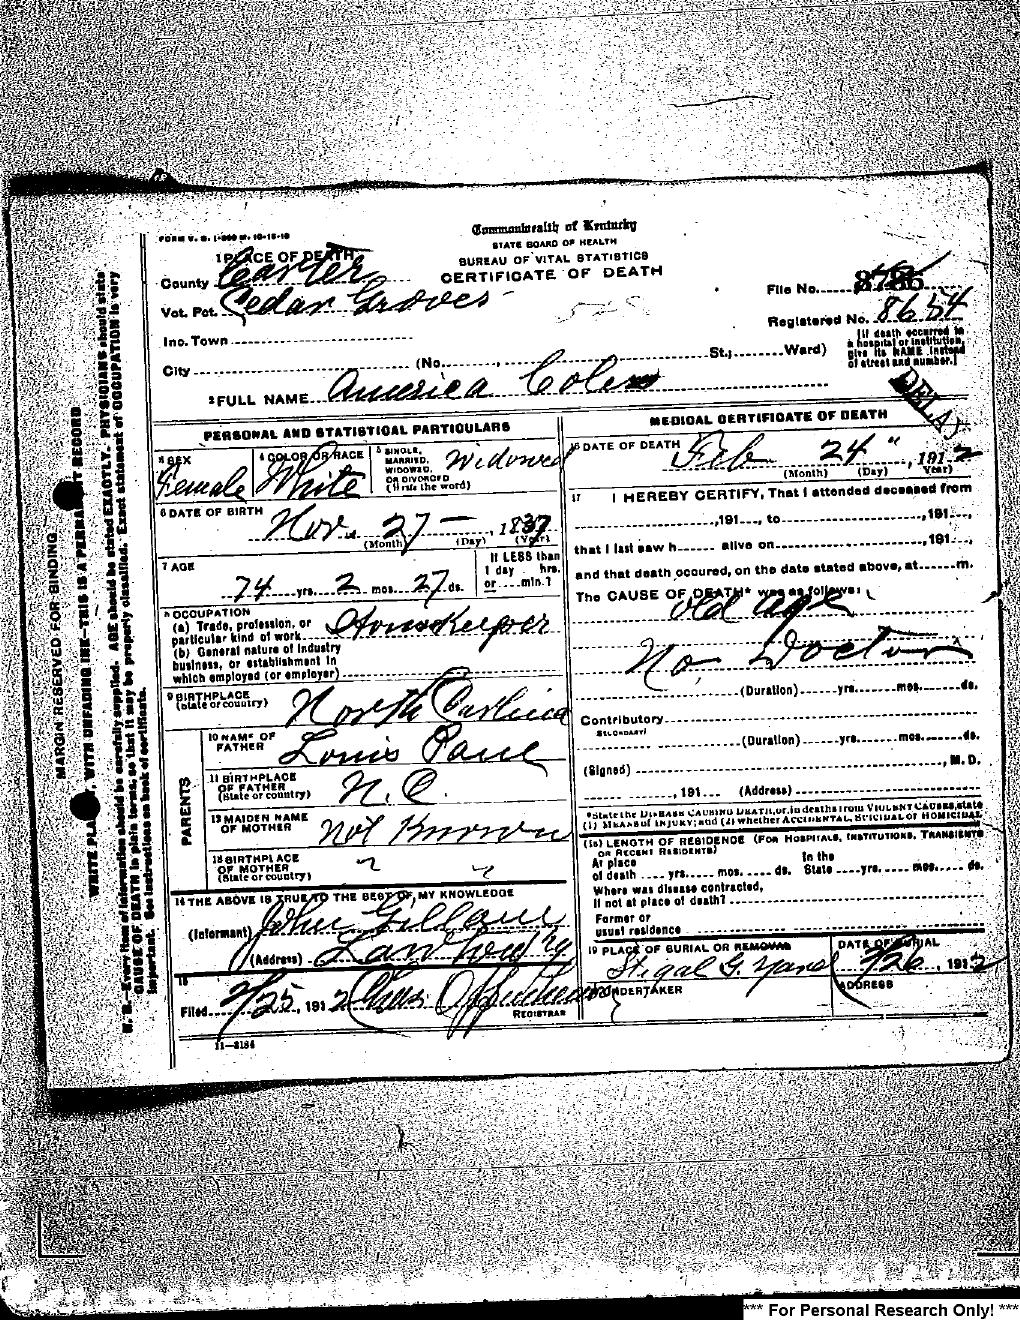 FORM V. S. 1-300 M. 10-15-10
Commonwealth of Kentucky
STATE BOARD OF HEALTH
BUREAU OF VITAL STATISTICS
CERTIFICATE OF DEATH
1 PLACE OF DEATH
County Carter
Vot. Pct. Cedar Groves
Inc. Town
City (No. St.; Ward)
File No.
Registered No. 8654
[If death occurred in
a hospital or institution,
give its NAME instead
of street and number.]
DELAY
2 FULL NAME America
PERSONAL AND STATISTICAL PARTICULARS
3 SEX
Female
4 COLOR OR RACE
White
5 SINGLE,
MARRIED,
WIDOWED,
OR DIVORCED
(Write the word)
Widowed
6 DATE OF BIRTH
Nov. 27 , 1837
(Month) (Day) (Year)
7 AGE
74 yrs. 2 mos. 27 ds.
If LESS than
1 day hrs.
or min.?
8 OCCUPATION
(a) Trade, profession, or
particular kind of work HouseKeeper
(b) General nature of Industry
business, or establishment in
which employed (or employer)
9 BIRTHPLACE
(State or country) North Carlina
PARENTS
10 NAME OF
FATHER Louis
11 BIRTHPLACE
OF FATHER
(State or country) N. C.
12 MAIDEN NAME
OF MOTHER Not Known
13 BIRTHPLACE
OF MOTHER
(State or country)
14 THE ABOVE IS TRUE TO THE BEST OF MY KNOWLEDGE
(Informant) John
(Address)
15
Filed 2/25, 1912
REGISTRAR
11-3184
MEDICAL CERTIFICATE OF DEATH
16 DATE OF DEATH Feb 24", 1912
(Month) (Day) (Year)
17 I HEREBY CERTIFY, That I attended deceased from
,191 , to ,191 ,
that I last saw h alive on ,191 ,
and that death occured, on the date stated above, at m.
The CAUSE OF DEATH* was as follows:
old age
No Doctor
(Duration) yrs. mos. ds.
Contributory
SECONDARY
(Duration) yrs. mos. ds.
(Signed) , M. D.
, 191 (Address)
*State the DISEASE CAUSING DEATH, or, in deaths from VIOLENT CAUSES, state
(1) MEANS OF INJURY; and (2) whether ACCIDENTAL, SUICIDAL or HOMICIDAL
(18) LENGTH OF RESIDENCE (FOR HOSPITALS, INSTITUTIONS, TRANSIENTS
OR RECENT RESIDENTS)
At place In the
of death yrs. mos. ds. State yrs. mos. ds.
Where was disease contracted,
If not at place of death?
Former or
usual residence
19 PLACE OF BURIAL OR REMOVAL
DATE OF BURIAL
2/26, 1912
UNDERTAKER
ADDRESS
MARGIN RESERVED FOR BINDING
N. B.—Every item of information should be carefully supplied. AGE should be stated EXACTLY. PHYSICIANS should state
CAUSE OF DEATH in plain terms, so that it may be properly classified. Exact statement of OCCUPATION is very
important. See instructions on back of certificate.
*** For Personal Research Only! ***